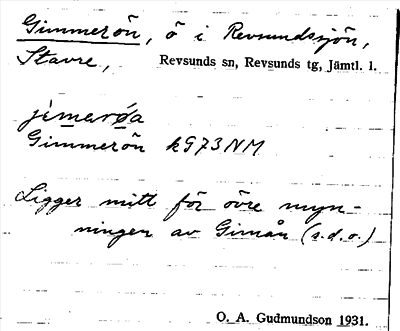 Gimmerön, ö i Revsundssjön,
Stavre, Revsunds sn, Revsunds tg, Jämtl. l.
jimarøa
Gimmerön kG73NM
Ligger mitt för övre myn-
ningen av Gimån (s.d.o.)
O. A. Gudmundson 1931.